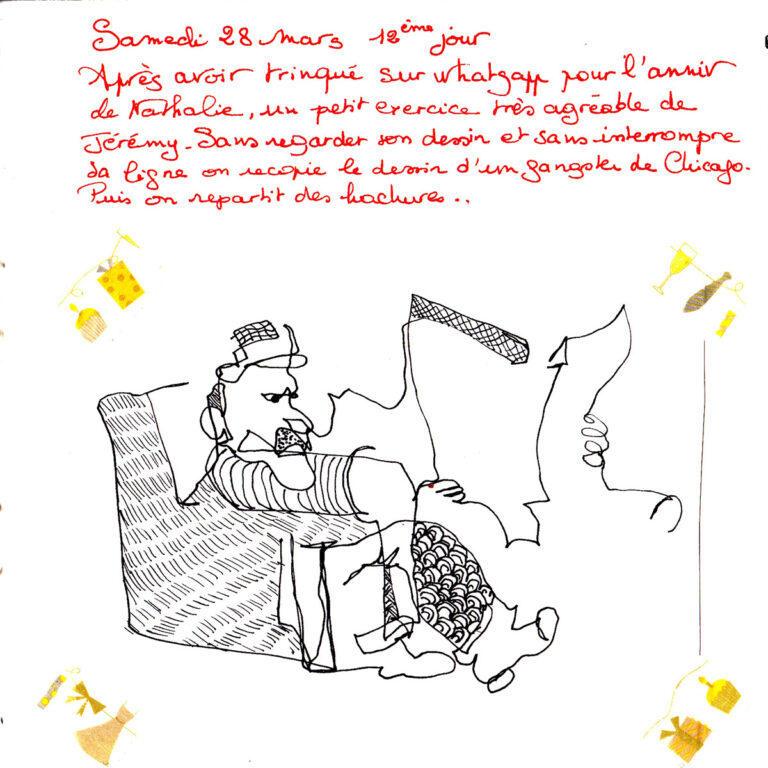 Samedi 28 mars 12ème jour
Après avoir trinqué sur whatsapp pour l'anniv
de Nathalie, un petit exercice très agréable de
Jérémy. Sans regarder son dessin et sans interrompre
sa ligne on recopie le dessin d'un gangster de Chicago.
Puis on repartit des hachures..